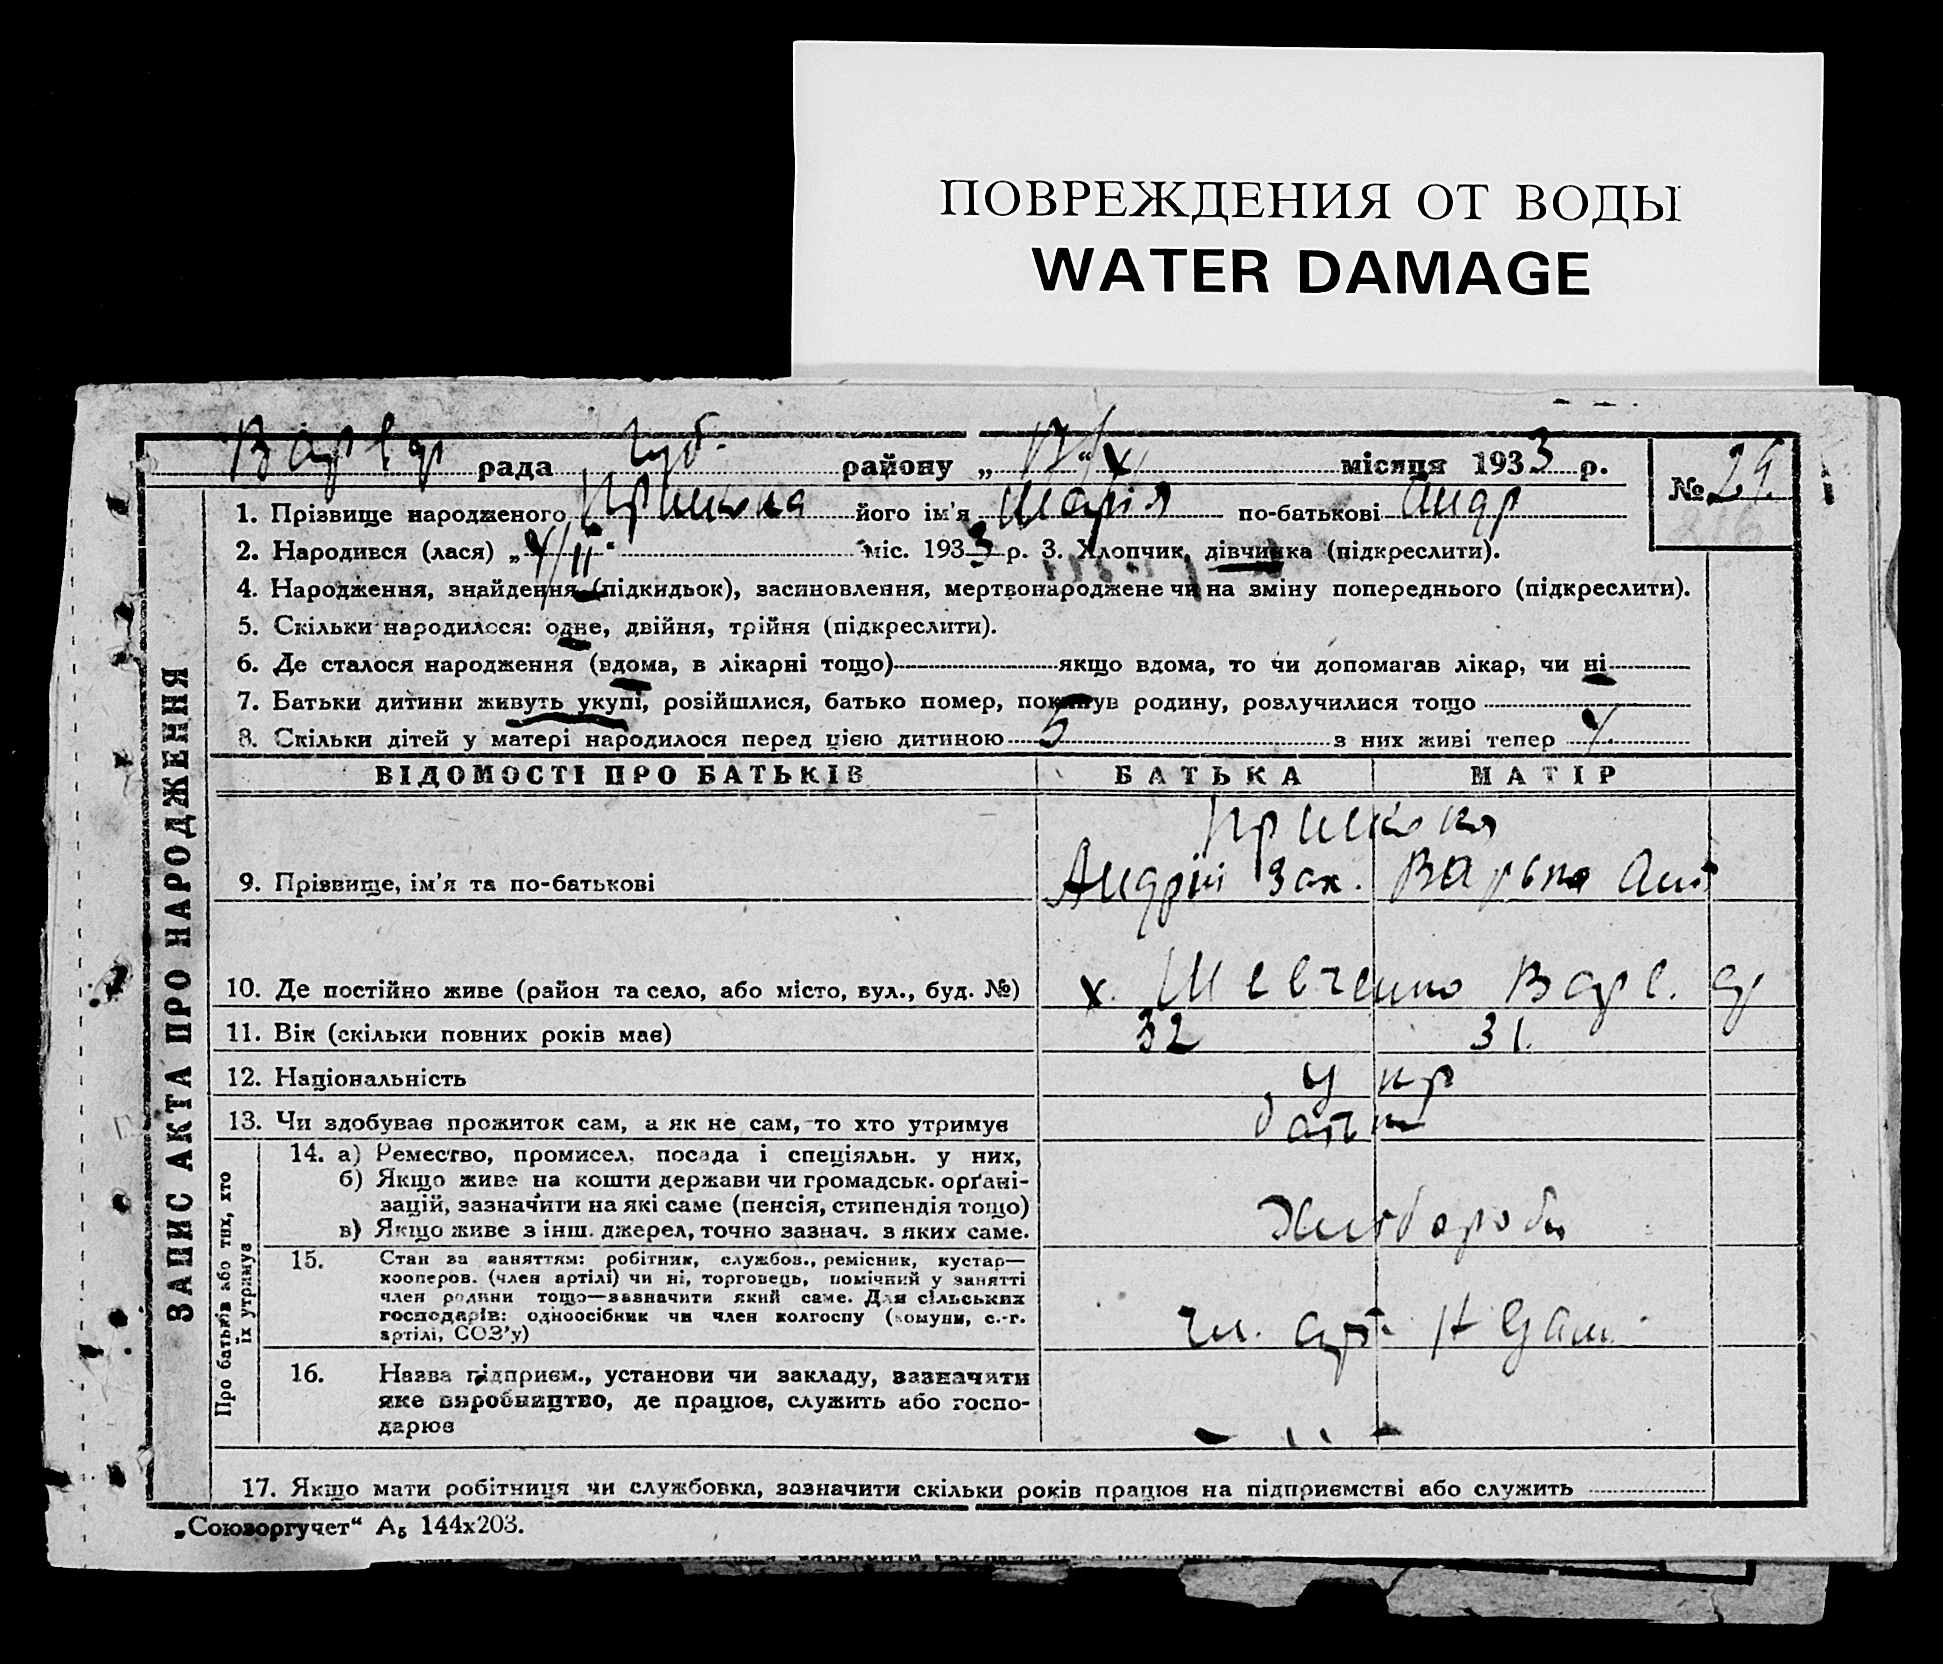 ПОВРЕЖДЕНИЯ ОТ ВОДЫ
WATER DAMAGE
рада района „ “ місяця 1933 р.
№ 29
1. Прізвище народженого його ім'я Марія по-батькові Андр
2. Народився (лася) „ “ міс. 1933 р. 3. Хлопчик, дівчинка (підкреслити).
4. Народження, знайдення (підкидьок), засиновлення, мертвонароджене чи на зміну попереднього (підкреслити).
5. Скільки народилося: одне, двійня, трійня (підкреслити).
6. Де сталося народження (вдома, в лікарні тощо) якщо вдома, то чи допомагав лікар, чи ні
7. Батьки дитини живуть укупі, розійшлися, батько помер, покинув родину, розлучилися тощо
8. Скільки дітей у матері народилося перед цією дитиною 5 з них живі тепер
ВІДОМОСТІ ПРО БАТЬКІВ БАТЬКА МАТІР
9. Прізвище, ім'я та по-батькові
Андрій Зах. Варька
10. Де постійно живе (район та село, або місто, вул., буд. №) х. Шевченко
11. Вік (скільки повних років має) 32 31.
12. Національність Укр
13. Чи здобуває прожиток сам, а як не сам, то хто утримує
14. а) Ремество, промисел, посада і спеціяльн. у них,
б) Якщо живе на кошти держави чи громадськ. орґані-
зацій, зазначити на які саме (пенсія, стипендія тощо)
в) Якщо живе з інш. джерел, точно зазнач. з яких саме.
Хлібороби
15. Стан за заняттям: робітник, службов., ремісник, кустар—
кооперов. (член артілі) чи ні, торговець, помічний у занятті
член родини тощо—зазначити який саме. Для сільських
господарів: одноосібник чи член колгоспу (комуни, с.-г.
артілі, СОЗ'у)
чл. арт.
16. Назва підприєм., установи чи закладу, зазначити
яке виробництво, де працює, служить або госпо-
дарює
17. Якщо мати робітниця чи службовка, зазначити скільки років працює на підприємстві або служить
ЗАПИС АКТА ПРО НАРОДЖЕННЯ
Про батьків або тих, хто
їх утримує
„Союзоргучет“ А5 144х203.